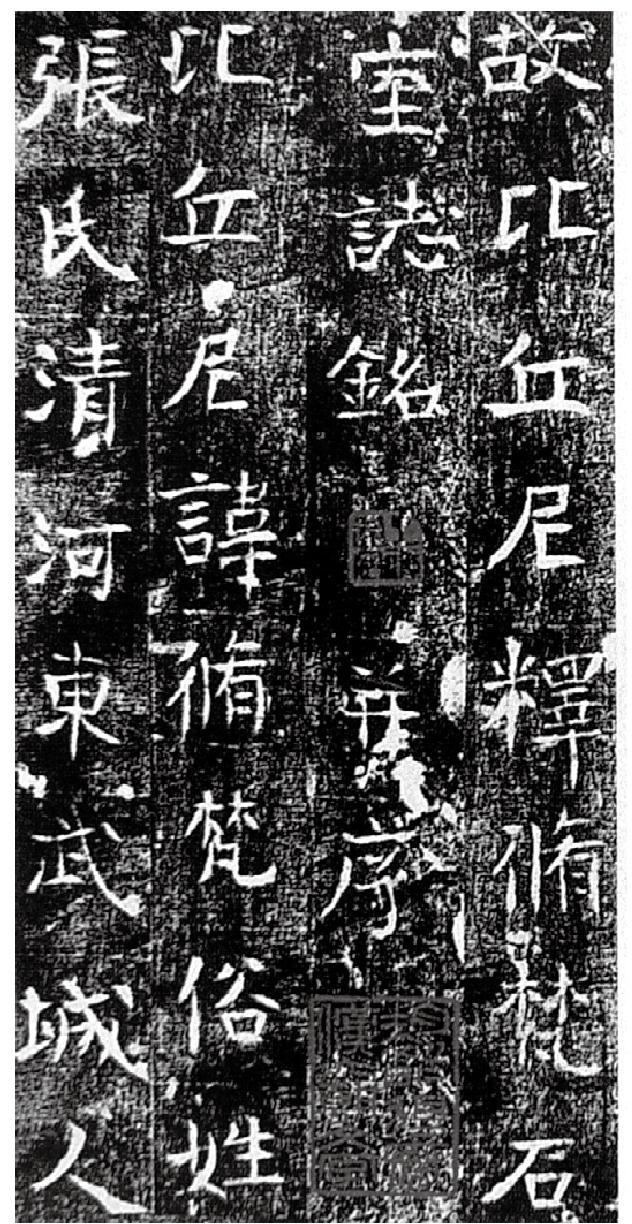 故比丘尼釋脩梵石
室誌銘并序
比丘尼諱脩梵俗姓
張氏清河東武城人